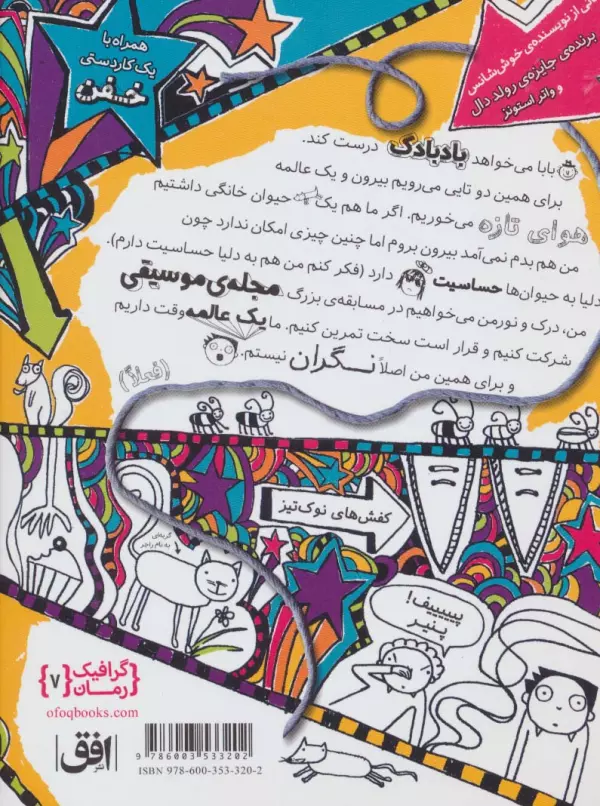 همراه با
یک کاردستی
خفن
از نویسنده‌ی خوش‌شانس
برنده‌ی جایزه‌ی رولد دال
و واتر استونز
بابا می‌خواهد بادبادک درست کند.
برای همین دو تایی می‌رویم بیرون و یک عالمه
هوای تازه می‌خوریم. اگر ما هم یک حیوان خانگی داشتیم
من هم بدم نمی‌آمد بیرون بروم اما چنین چیزی امکان ندارد چون
دلیا به حیوان‌ها حساسیت دارد (فکر کنم من هم به دلیا حساسیت دارم).
من، درک و نورمن می‌خواهیم در مسابقه‌ی بزرگ مجله‌ی موسیقی
شرکت کنیم و قرار است سخت تمرین کنیم. ما یک عالمه وقت داریم
و برای همین من اصلاً نگران نیستم.
(فعلاً)
کفش‌های نوک‌تیز
گربه‌ای
به نام راجر
پیییییف!
پنیر
گرافیک
رمان
{۷}
ofoqbooks.com
نشر افق
9 786003 533202
ISBN 978-600-353-320-2